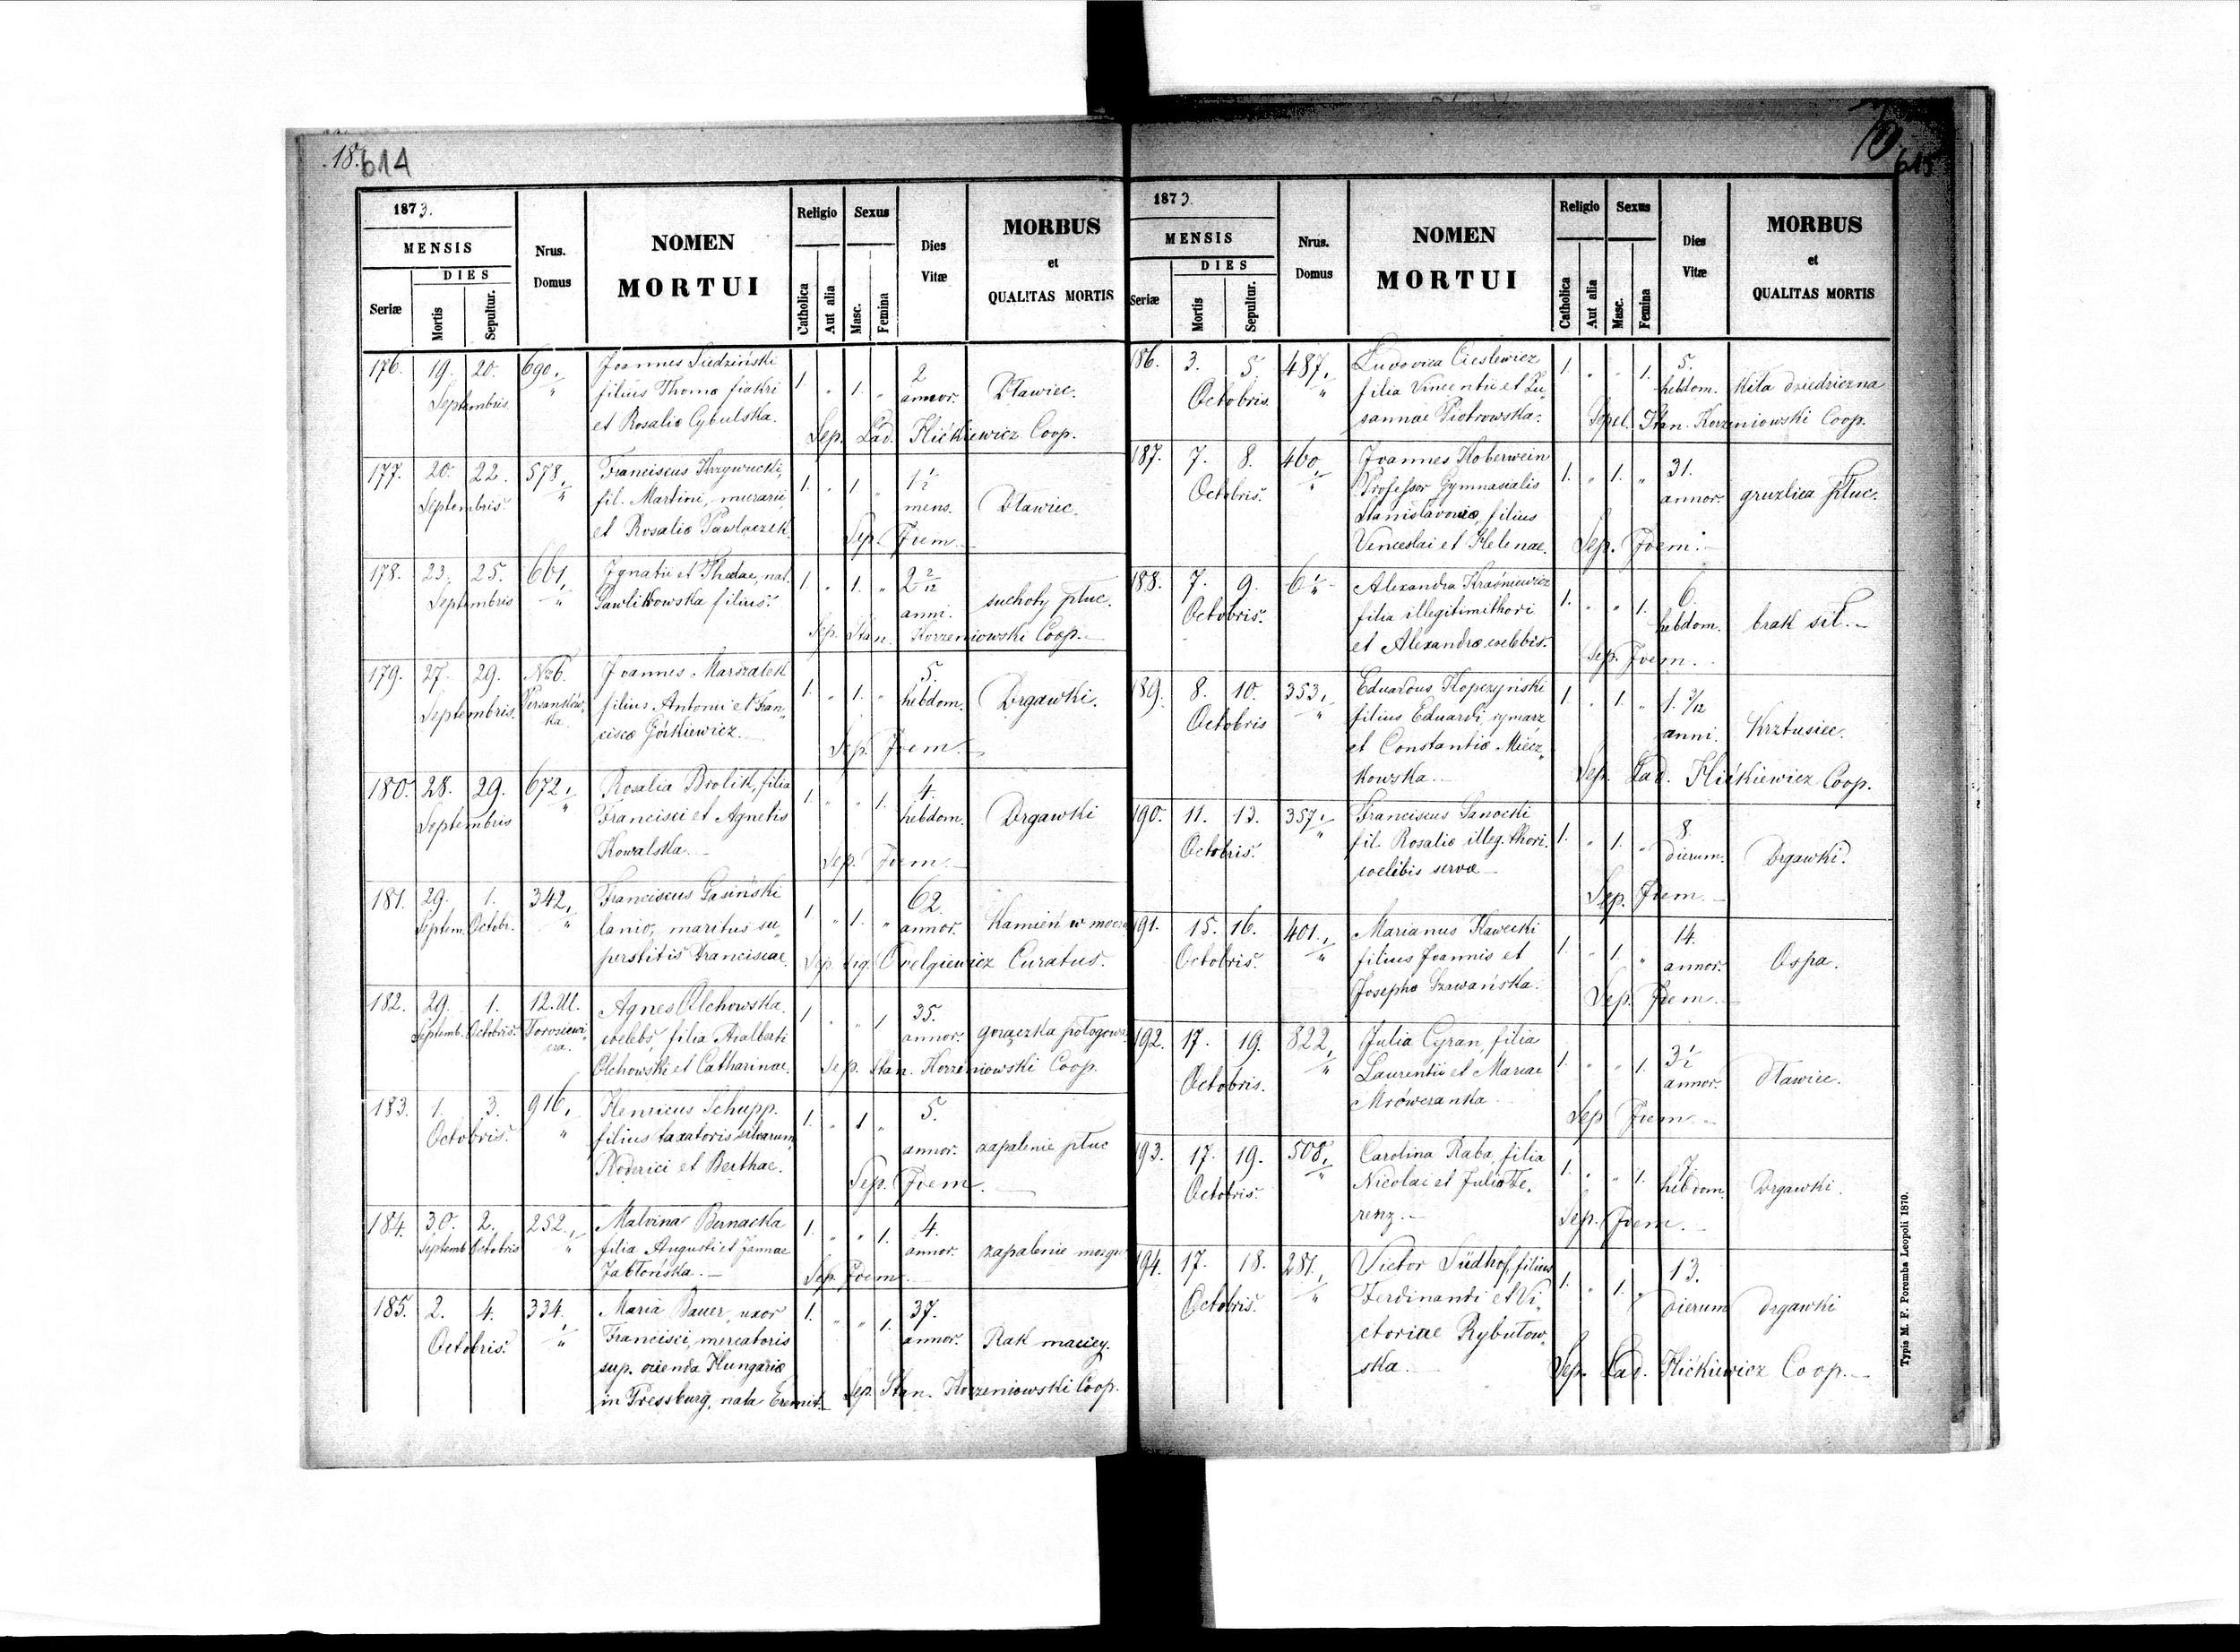 18. 614
1873.
MENSIS
DIES
Seriæ
Mortis
Sepultur.
Nrus.
Domus
NOMEN
MORTUI
Religio
Catholica
Aut alia
Sexus
Masc.
Femina
Dies
Vitæ
MORBUS
et
QUALITAS MORTIS
176. 19. 20. 690. Joannes Siedziński
Septembris. filius Thomæ fiakri 1 " 1. " 2 annor. Dławiec.
et Rosaliæ Cybulska.
Sep. Lad. Hićkiewicz Coop.
177. 20. 22. 578. Franciscus Krzywucki,
Septembris. fil. Martini, murarii, 1. " 1. " 1½ mens. Dławiec.
et Rosaliæ Pawlaczek.
Sep. Idem.
178. 23. 25. 661. Ignatii et Theclae, nat.
Septembris Pawlikowska filius. 1. " 1. " 2 2/12 anni. suchoty płuc.
Sep. Stan. Korzeniowski Coop.
179. 27. 29. No 6. Joannes Marszałek
Septembris. filius Antonii et Fran" 1. " 1. " 5. hebdom. Drgawki.
ciscæ Górkiewicz.
Sep. Idem.
180. 28. 29. 672. Rosalia Brolik, filia
Septembris Francisci et Agnetis 1. " " 1. 4. hebdom. Drgawki
Kowalska.
Sep. Idem.
181. 29. 1. 342. Franciscus Gasiński
Septem. Octobr. lanio, maritus su" 1. " 1. " 62. annor. Kamień w
perstitis Franciscae.
Sep. Curatus.
182. 29. 1. 12. Ul. Agnes Olchowska
Septemb. Octobris. coelebs, filia Adalberti 1. " " 1 35. annor. gorączka
Olchowski et Catharinae.
Sep. Stan. Korzeniowski Coop.
183. 1. 3. 916. Henricus Schupp.
Octobris. filius taxatoris silvarum 1. " 1 " 5. annor. zapalenie płuc
Roderici et Berthae.
Sep. Idem.
184. 30. 2. 252. Malvina Bernacka
Septemb Octobris filia Augusti et Joannae 1. " " 1. 4. annor. zapalenie mózgu
Jabłońska.
Sep. Idem.
185. 2. 4. 334. Maria Bauer, uxor
Octobris. Francisci, mercatoris 1. " " 1. 37. annor. Rak maciey.
sup. Hungariæ
in Pressburg, nata
Sep. Stan. Korzeniowski Coop.
615
1873.
MENSIS
DIES
Seriæ
Mortis
Sepultur.
Nrus.
Domus
NOMEN
MORTUI
Religio
Catholica
Aut alia
Sexus
Masc.
Femina
Dies
Vitæ
MORBUS
et
QUALITAS MORTIS
186. 3. 5. 487. Ludovica Cieslewicz
Octobris. filia Vincentii et Zu" 1. " " 1. 5. hebdom. kiła dziedziczna
sannae Piotrowska.
Sepel. Stan. Korzeniowski Coop.
187. 7. 8. 460. Joannes Koberwein
Octobris. Professor Gymnasialis 1. " 1. " 31. annor. gruzlica płuc.
Stanislavoviæ, filius
Venceslai et Helenae.
Sep. Idem.
188. 7. 9. 6 Alexandra Kraśniewicz
Octobris. filia illegitimi thori 1. " " 1. 6. hebdom. brak sił.
et Alexandræ coelebis.
Sep. Idem.
189. 8. 10. 353. Eduardus Kopczyński
Octobris filius Eduardi, rymarz 1. " 1. " anni. Krztusiec.
et Constantiæ Miécz"
kowska.
Sep. Lad. Hićkiewicz Coop.
190. 11. 13. 357. Franciscus Sanocki
Octobris. fil. Rosaliæ illeg. thori. 1. " 1. " 8. dierum. Drgawki.
coelibis servæ
Sep. Idem.
191. 15. 16. 401. Marianus Kawecki
Octobris. filius Joannis et 1. " 1. " 14. annor. Ospa.
Josephæ Szawańska.
Sep. Idem.
192. 17. 19. 822. Julia Cyran, filia
Octobris. Laurentii et Mariae 1. " " 1. 3½ annor. dławiec.
Mrówczanka
Sep. Idem.
193. 17. 19. 508. Carolina Raba, filia
Octobris. Nicolai et Juliæ Fe" 1. " " 1. 7. hebdom. Drgawki.
renz.
Sep. Idem.
194. 17. 18. 281. Victor Südhof, filius
Octobris. Ferdinandi et Vi" 1. " 1. " 13. dierum drgawki
ctoriae Rybutow"
ska.
Sep. Lad. Hićkiewicz Coop.
Typis M. F. Poremba Leopoli 1870.